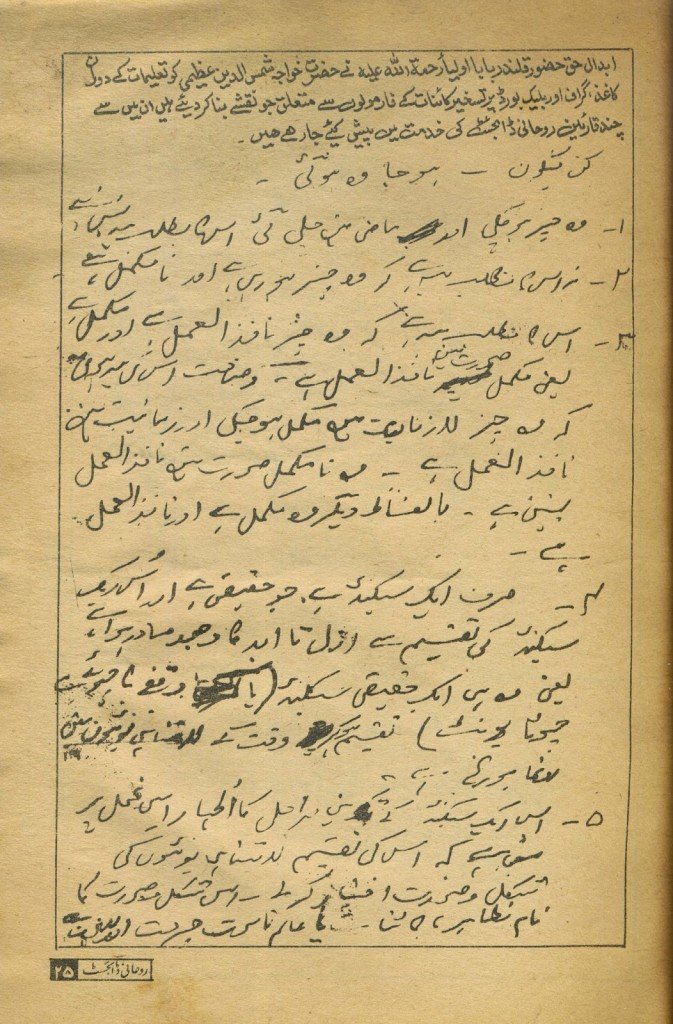 ابدال حق حضور قلندر بابا اولیاؒ رحمۃ اللہ علیہ نے حضرت خواجہ شمس الدین عظیمی کو تعلیمات کے دوران
کاغذ، گراف اور بلیک بورڈ پر تسخیر کائنات کے فارمولوں سے متعلق جو نقشے بنا کر دیئے ہیں ان میں سے
چند قارئین روحانی ڈائجسٹ کی خدمت میں پیش کیے جا رہے ہیں۔
کن فیکون ۔ ہو جا وہ ہو گئی ۔
۱۔ وہ چیز ہو چکی اور ماضی میں چلی گئی اس کا مطلب یہ نہیں ہے
۲۔ نہ اس کا مطلب یہ ہے کہ وہ چیز ہو رہی ہے اور نامکمل ہے
۳۔ اس کا مطلب یہ ہے کہ وہ چیز نافذ العمل ہے اور مکمل ہے
یعنی مکمل صورت میں نافذ العمل ہے۔ وضاحت اس کی یہ ہوئی
کہ وہ چیز لازمانیت میں مکمل ہو چکی اور زمانیت میں
نافذ العمل ہے ۔ وہ نامکمل صورت میں نافذ العمل
نہیں ہے ۔ بالفاظ دیگر وہ مکمل ہے اور نافذ العمل
ہے ۔
۴۔ صرف ایک سیکنڈ ہے جو حقیقی ہے اور اس ایک
سیکنڈ کی تقسیم سے ازل تا ابد کا وجود صادر ہوا ہے
یعنی وہی ایک حقیقی سیکنڈ (یا وقفے کا
چھوٹا یونٹ) تقسیم ہو کر وقت کے لامتناہی یونٹوں میں
رونما ہو رہا ہے ۔
۵۔ اس ایک سیکنڈ کے تکوینی مراحل کا اظہار اسی عمل پر
کہ اس کی تقسیم لامتناہی یونٹوں کی
شکل و صورت اختیار کر لے ۔ اس شکل و صورت کا
نام مظاہر، کائنات یا عالم ناسوت
روحانی ڈائجسٹ ۲۵